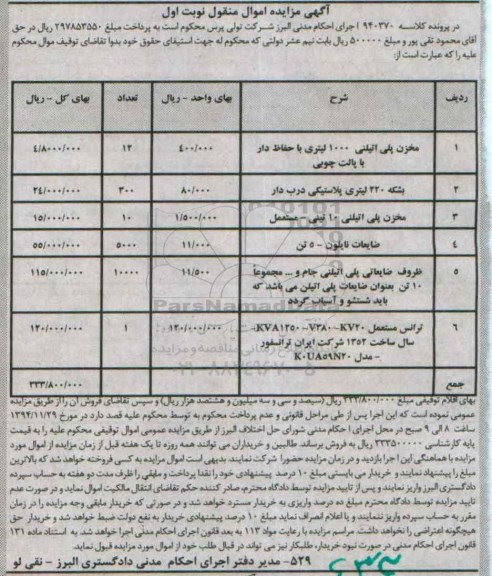 آگهی مزایده اموال منقول نوبت اول
در پرونده کلاسه ۹۴۰۳۷۰ اجرای احکام مدنی البرز شرکت تولی پرس محکوم است به پرداخت مبلغ ۲۹۷۸۵۳۵۵۰ ریال در حق
آقای محمود تقی پور و مبلغ ۵۰۰۰۰۰ ریال بابت نیم عشر دولتی که محکوم له جهت استیفای حقوق خود بدوا تقاضای توقیف موال محکوم
علیه را که عبارت است از:
ردیف شرح بهای واحد - ریال تعداد بهای کل - ریال
۱ مخزن پلی اتیلنی ۱۰۰۰ لیتری با حفاظ دار با پالت چوبی ۴۰۰/۰۰۰ ۱۲ ۴/۸۰۰۰/۰۰۰
۲ بشکه ۲۲۰ لیتری پلاستیکی درب دار ۸۰/۰۰۰ ۳۰۰ ۲۴/۰۰۰/۰۰۰
۳ مخزن پلی اتیلنی ۱۰ تینی - مستعمل ۱/۵۰۰/۰۰۰ ۱۰ ۱۵/۰۰۰/۰۰۰
۴ ضایعات نایلون - ۵ تن ۱۱/۰۰۰ ۵۰۰۰ ۵۵/۰۰۰/۰۰۰
۵ ظروف ضایعاتی پلی اتیلنی جام و ... مجموعا ۱۰ تن بعنوان ضایعات پلی اتیلن می باشد که باید شستشو و آسیاب گردد ۱۱/۵۰۰ ۱۰۰۰۰ ۱۱۵/۰۰۰/۰۰۰
۶ ترانس مستعمل KVA۱۲۵۰-V۳۸۰-KV۲۰- سال ساخت ۱۳۵۲ شرکت ایران ترانسفور - مدل KOUA۵۹N۲۰ ۱۲۰/۰۰۰/۰۰۰ ۱ ۱۲۰/۰۰۰/۰۰۰
جمع ۳۳۳/۸۰۰/۰۰۰
بهای اقلام توقیفی مبلغ ۳۳۳/۸۰۰/۰۰۰ ریال (سیصد و سی و سه میلیون و هشتصد هزار ریال) و سپس تقاضای فروش آن را از طریق مزایده
عمومی نموده است که این اجرا پس از طی مراحل قانونی و عدم پرداخت محکوم به توسط محکوم علیه قصد دارد در مورخ ۱۳۹۴/۱۱/۲۹
ساعت ۸ الی ۹ صبح در محل اجرای احکام مدنی شورای حل اختلاف البرز از طریق مزایده عمومی اموال توقیفی محکوم علیه را به قیمت
پایه کارشناسی ۳۳۳۵۰۰۰۰۰ ریال به فروش برساند. طالبین و خریداران می توانند همه روزه تا یک هفته قبل از زمان مزایده از اموال مورد
مزایده با هماهنگی این اجرا بازدید و در زمان مزایده حضورا شرکت نمایند. بدیهی است اموال مزایده به کسی فروخته خواهد شد که بالاترین
مبلغ را پیشنهاد نمایند و خریدار می بایستی مبلغ ۱۰ درصد پیشنهادی خود را نقدا پرداخت و مابقی را ظرف مدت دو هفته به حساب سپرده
دادگستری البرز واریز نمایند و پس از تایید مزایده توسط دادگاه محترم، صادر کننده حکم تقاضای انتقال مالکیت اموال نماید و در صورت عدم
تایید مزایده توسط دادگاه محترم مبلغ ده درصد واریزی به خریدار مسترد خواهد شد و در صورتی که خریدار مابقی وجه مزایده را در زمان
مقرر به حساب سپرده واریز ننمایند و یا اعلام انصراف نماید مبلغ ۱۰ درصد پیشنهادی خریدار به نفع دولت ضبط خواهد شد و خریدار حق
هیچگونه اعتراضی را نخواهد داشت. مراسم مزایده با رعایت مواد ۱۱۳ به بعد قانون اجرای احکام مدنی اجرا خواهد شد. به استناد ماده ۱۳۱
قانون اجرای احکام مدنی در صورت نبود خریدار، طلبکار نیز می تواند در قبال طلب خود از اموال مورد مزایده قبول نماید.
۵۲۹- مدیر دفتر اجرای احکام مدنی دادگستری البرز - نقی لو